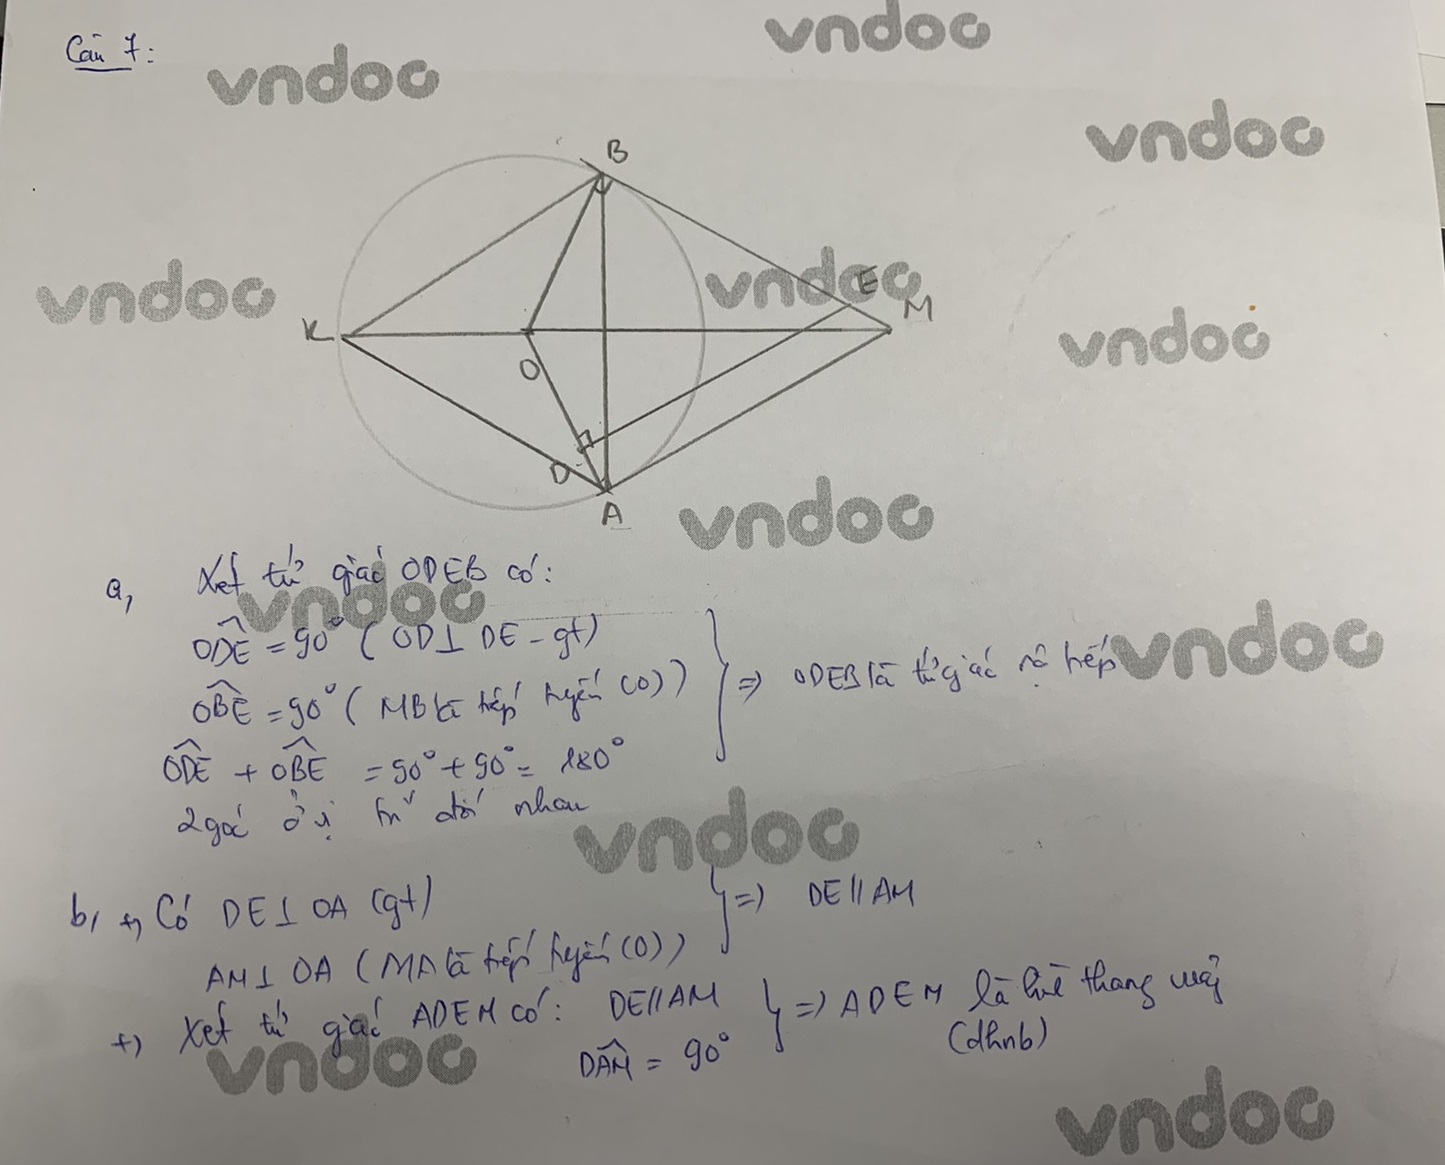 Câu 7:
vndoc
vndoc
vndoc
B
vndoc
vndoc
E
M
vndoc
K
O
D
A
vndoc
a, Xét tứ giác ODEB có:
vndoc
ODE = 90° (OD⊥DE - gt)
OBE = 90° (MB là tiếp tuyến (O))
} => ODEB là tứ giác nội tiếp
vndoc
ODE + OBE = 90° + 90° = 180°
2 góc ở vị trí đối nhau
vndoc
b, +, Có DE⊥OA (gt)
AM⊥OA (MA là tiếp tuyến (O))
} => DE//AM
+) Xét tứ giác ADEM có: DE//AM
DAM = 90°
} => ADEM là hình thang vuông
(dhnb)
vndoc
vndoc